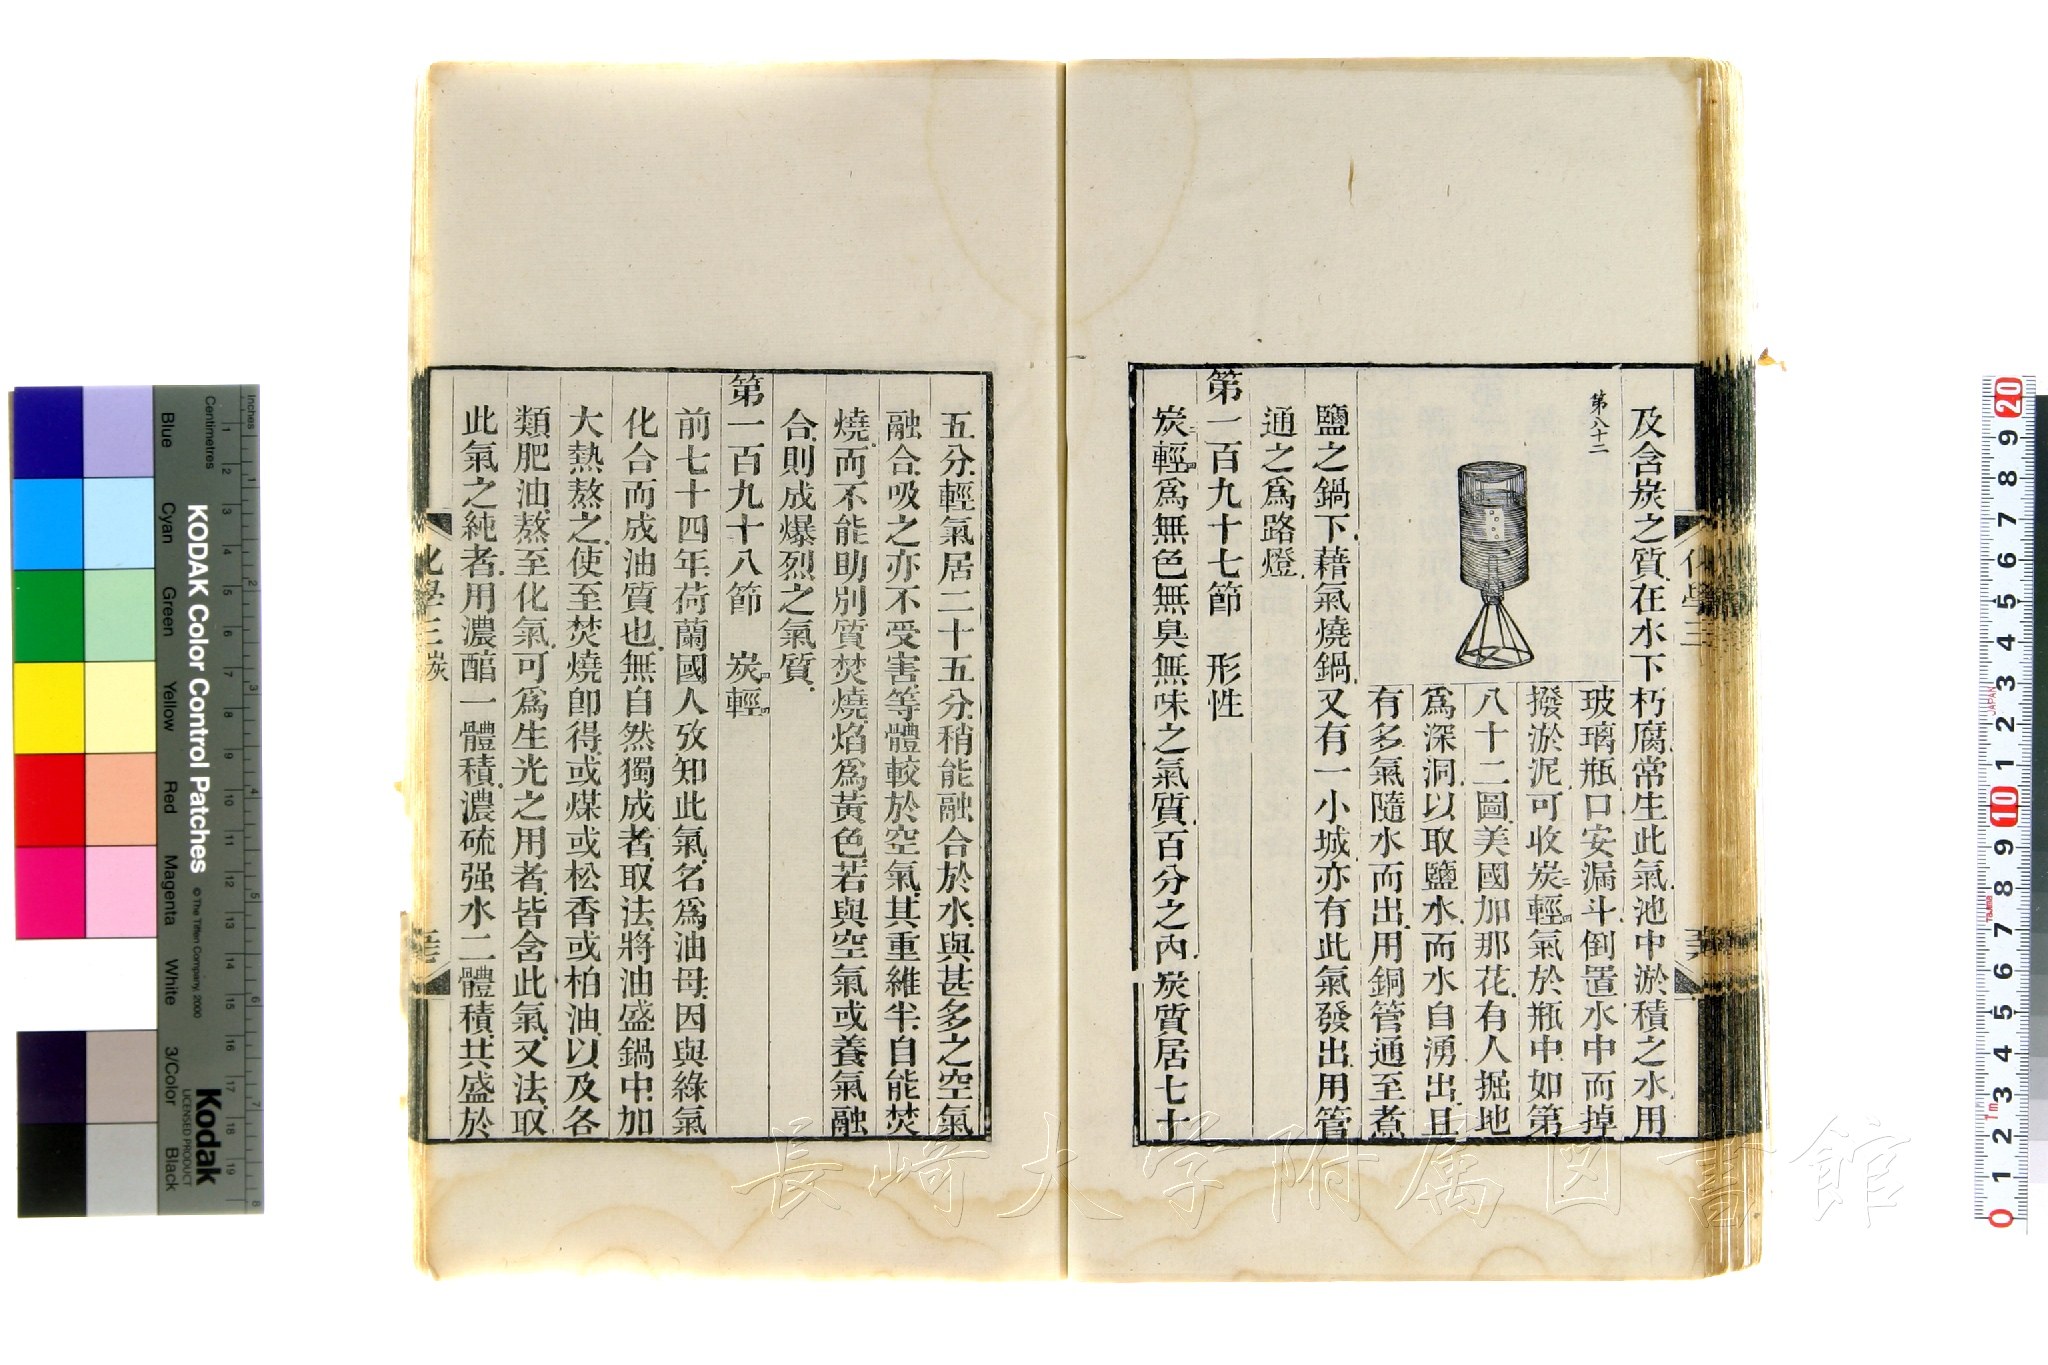 及含炭之質在水下朽腐常生此氣池中淤積之水用
第八十二
玻璃瓶口安漏斗倒置水中而掉
撥淤泥可收炭二輕四氣於瓶中如第
八十二圖美國加那花有人掘地
爲深洞以取鹽水而水自湧出且
有多氣隨水而出用銅管通至煮
鹽之鍋下藉氣燒鍋又有一小城亦有此氣發出用管
通之爲路燈
第一百九十七節 形性
炭二輕四爲無色無臭無味之氣質百分之內炭質居七十
化學三
五分輕氣居二十五分稍能融合於水與甚多之空氣
融合吸之亦不受害等體較於空氣其重維半自能焚
燒而不能助別質焚燒焰爲黃色若與空氣或養氣融
合則成爆烈之氣質
第一百九十八節 炭四輕四
前七十四年荷蘭國人攷知此氣名爲油母因與綠氣
化合而成油質也無自然獨成者取法將油盛鍋中加
大熱熬之使至焚燒卽得或煤或松香或柏油以及各
類肥油熬至化氣可爲生光之用者皆含此氣又法取
此氣之純者用濃醕一體積濃硫强水二體積共盛於
化學三 炭
Inches
Centimetres
KODAK Color Control Patches
© The Tiffen Company, 2000
Kodak
LICENSED PRODUCT
Blue
Cyan
Green
Yellow
Red
Magenta
White
3/Color
Black
長崎大学附属図書館
JAPAN
Tajima